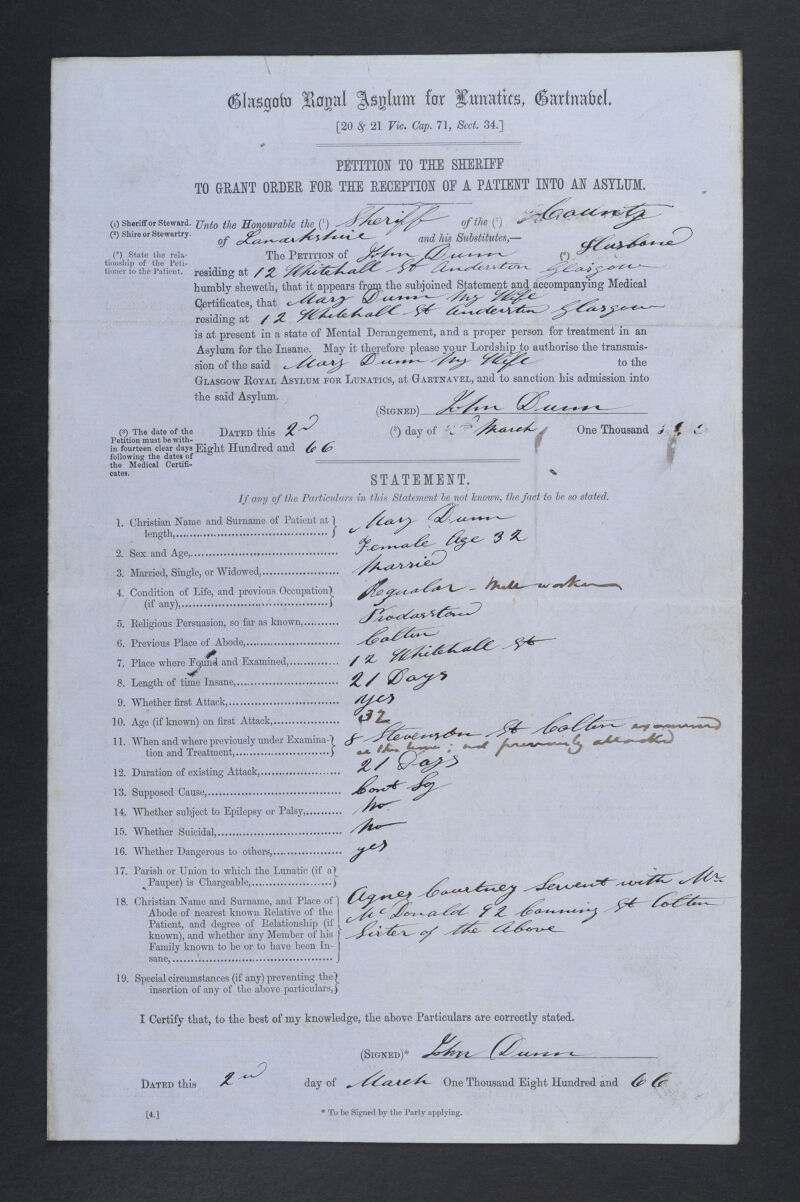 Glasgow Royal Asylum for Lunatics, Gartnavel.
[20 & 21 Vic. Cap. 71, Sect. 34.]
PETITION TO THE SHERIFF
TO GRANT ORDER FOR THE RECEPTION OF A PATIENT INTO AN ASYLUM.
(1) Sheriff or Steward.
(2) Shire or Stewartry.
(*) State the rela-
tionship of the Peti-
tioner to the Patient.
Unto the Honourable the (1) Sheriff of the (2) County
of Lanarkshire and his Substitutes,—
The PETITION of John Dunn (*) Husband
residing at 12 Whitehall St Anderston Glasgow
humbly sheweth, that it appears from the subjoined Statement and accompanying Medical
Certificates, that Mary Dunn My Wife
residing at 12 Whitehall St Anderston Glasgow
is at present in a state of Mental Derangement, and a proper person for treatment in an
Asylum for the Insane. May it therefore please your Lordship to authorise the transmis-
sion of the said Mary Dunn My Wife to the
GLASGOW ROYAL ASYLUM FOR LUNATICS, at GARTNAVEL, and to sanction his admission into
the said Asylum.
(SIGNED) John Dunn
(3) The date of the
Petition must be with-
in fourteen clear days
following the dates of
the Medical Certifi-
cates.
DATED this 2nd (3) day of March One Thousand
Eight Hundred and 66
STATEMENT.
If any of the Particulars in this Statement be not known, the fact to be so stated.
1. Christian Name and Surname of Patient at length, Mary Dunn
2. Sex and Age, Female Age 32
3. Married, Single, or Widowed, Married
4. Condition of Life, and previous Occupation (if any), Regualar - Mill worker
5. Religious Persuasion, so far as known,
6. Previous Place of Abode, Calton
7. Place where Found and Examined, 12 Whitehall St
8. Length of time Insane, 21 Days
9. Whether first Attack, yes
10. Age (if known) on first Attack, 32
11. When and where previously under Examina-
tion and Treatment, 8 Stevenson St Calton examined
at this time; not previously attacked
12. Duration of existing Attack, 21 Days
13. Supposed Cause,
14. Whether subject to Epilepsy or Palsy, No
15. Whether Suicidal, No
16. Whether Dangerous to others, yes
17. Parish or Union to which the Lunatic (if a
Pauper) is Chargeable,
18. Christian Name and Surname, and Place of
Abode of nearest known Relative of the
Patient, and degree of Relationship (if
known), and whether any Member of his
Family known to be or to have been In-
sane,
Agnes Courtney Servent with Mr.
McDonald 92 Canning St Calton
Sister of the Above
19. Special circumstances (if any) preventing the
insertion of any of the above particulars,
I Certify that, to the best of my knowledge, the above Particulars are correctly stated.
(SIGNED)* John Dunn
DATED this 2nd day of March One Thousand Eight Hundred and 66
[4.]
* To be Signed by the Party applying.